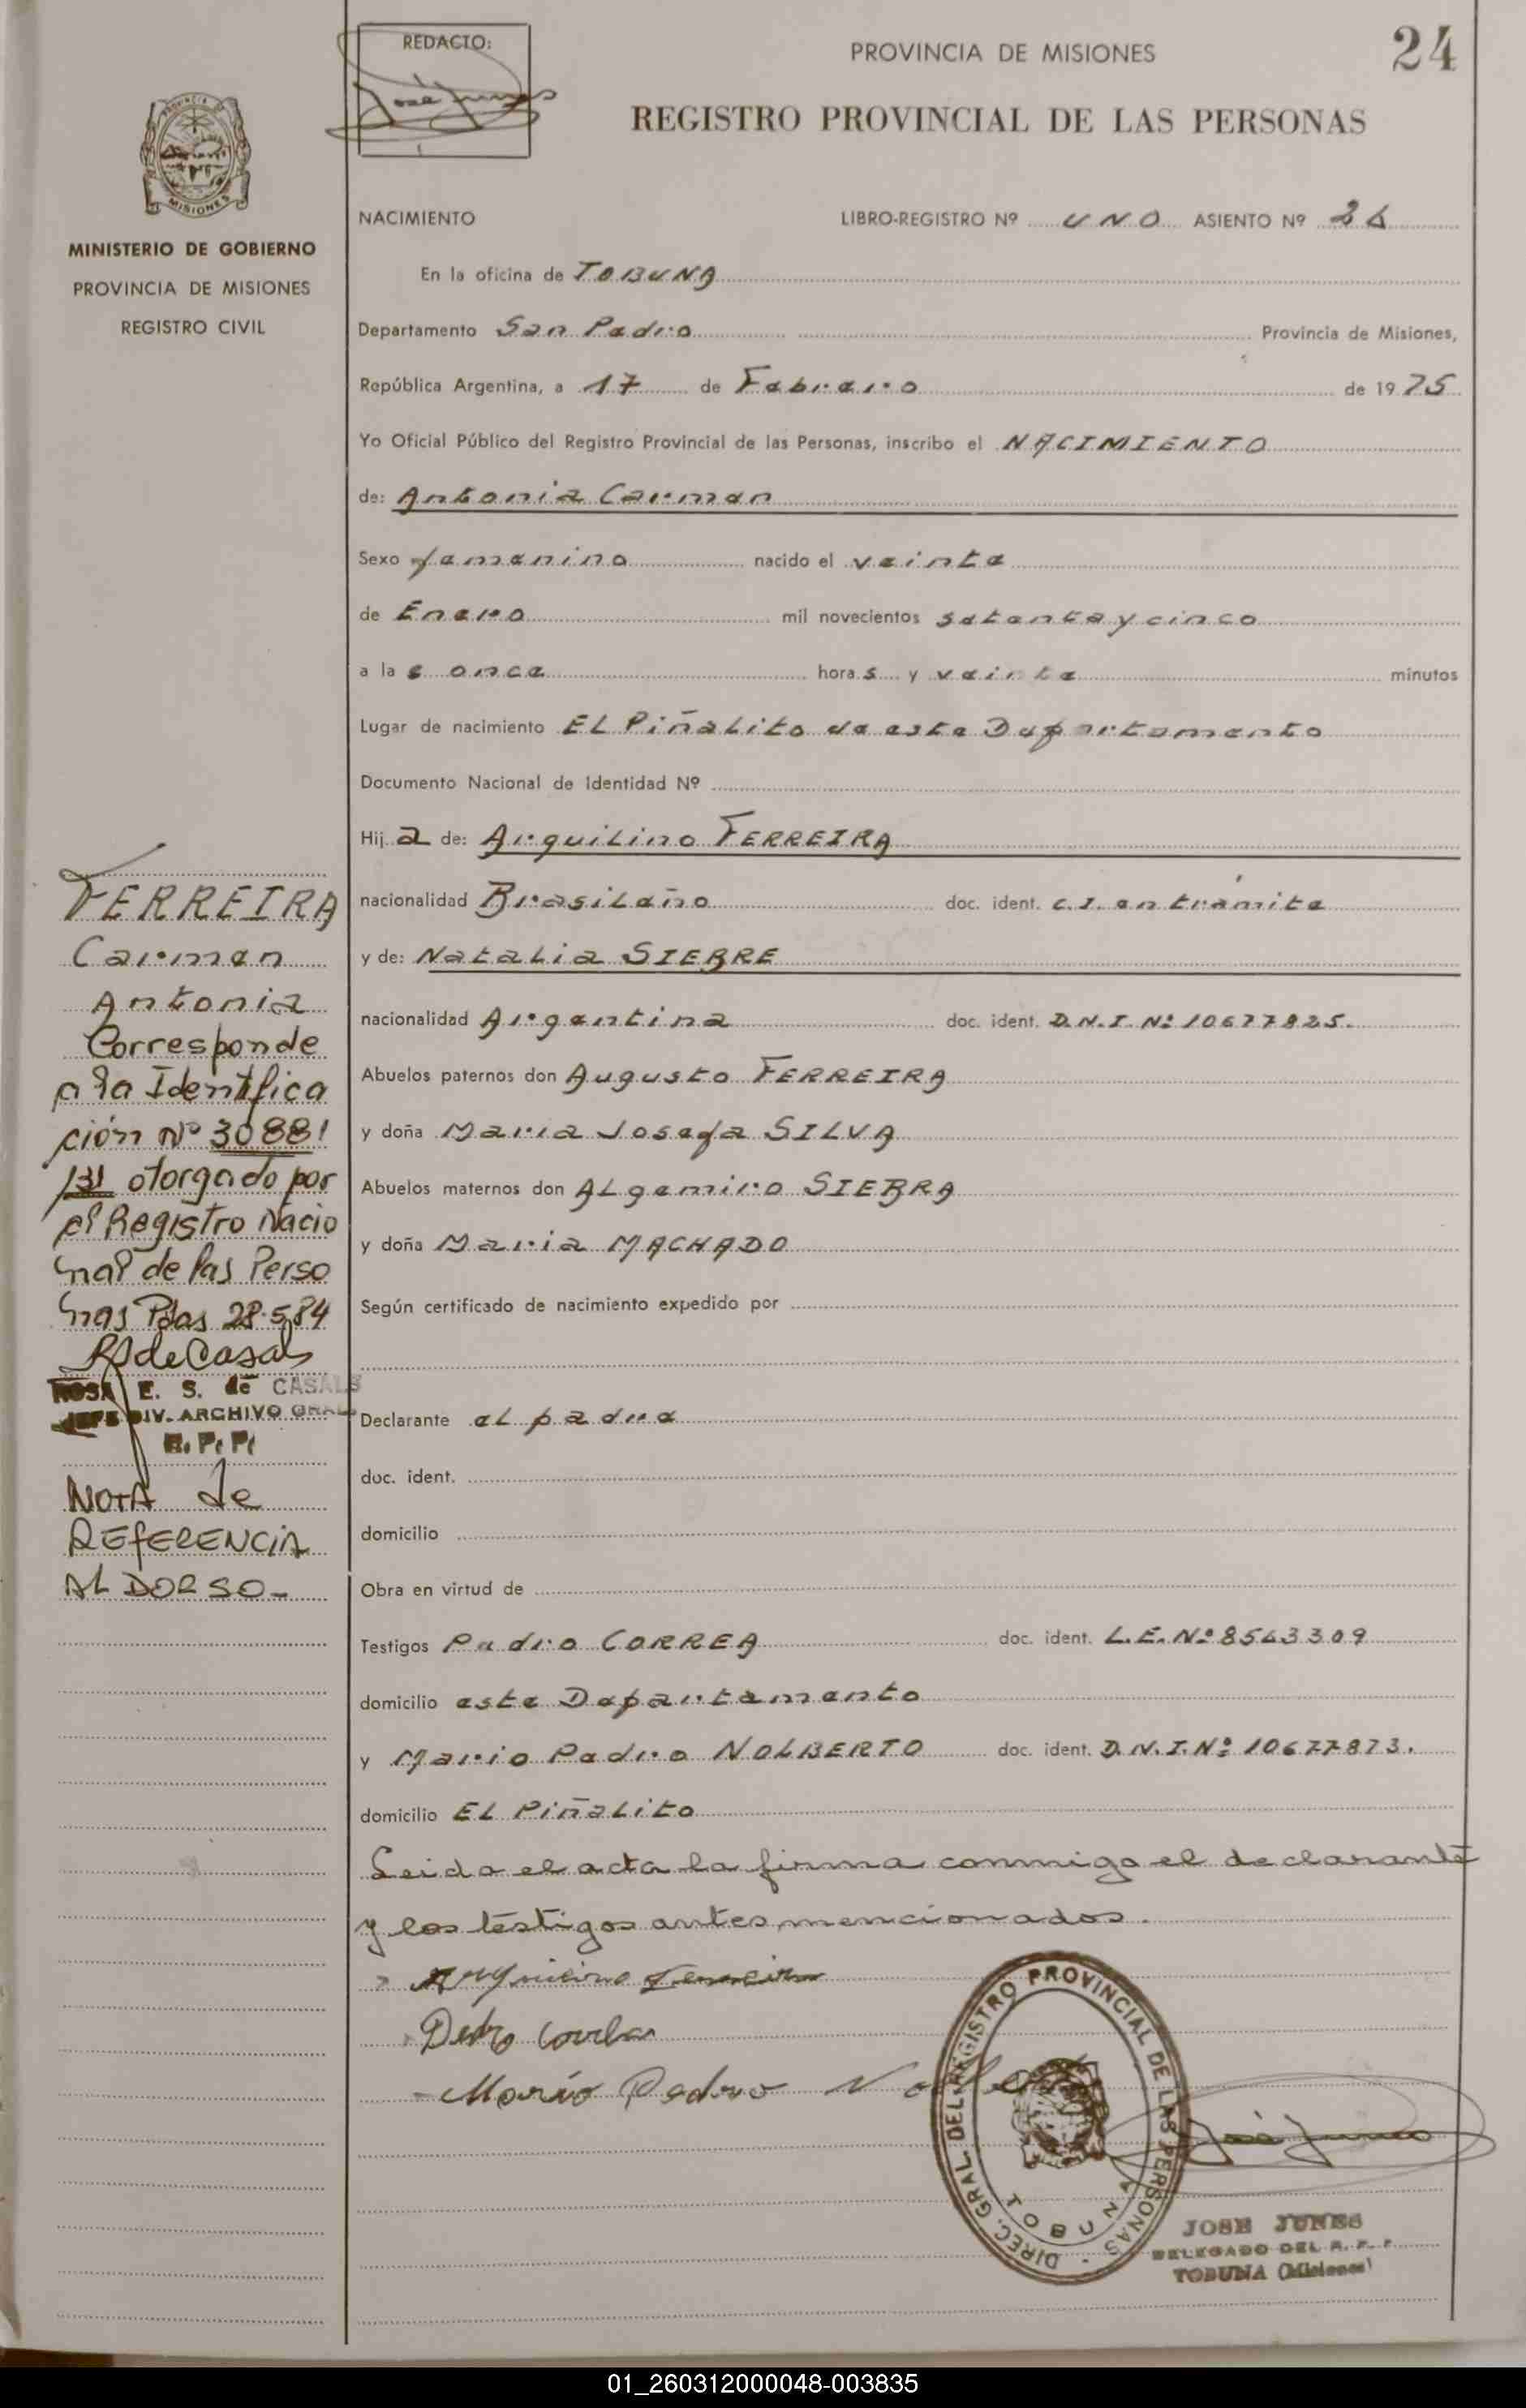 REDACTO:
José Junes
PROVINCIA DE MISIONES
24
REGISTRO PROVINCIAL DE LAS PERSONAS
PROVINCIA DE
MISIONES
MINISTERIO DE GOBIERNO
PROVINCIA DE MISIONES
REGISTRO CIVIL
NACIMIENTO LIBRO-REGISTRO Nº UNO ASIENTO Nº 24
En la oficina de TOBUNA
Departamento San Pedro Provincia de Misiones,
República Argentina, a 17 de Febrero de 1975
Yo Oficial Público del Registro Provincial de las Personas, inscribo el NACIMIENTO
de: Antonia Carmen
Sexo femenino nacido el veinte
de Enero mil novecientos setenta y cinco
a las once horas y veinte minutos
Lugar de nacimiento EL Piñalito de este Departamento
Documento Nacional de Identidad Nº
Hija de: Arquilino FERREIRA
nacionalidad Brasileño doc. ident. C.I. en trámite
y de: Natalia SIEBRE
nacionalidad Argentina doc. ident. D.N.I. Nº 10677825.
Abuelos paternos don Augusto FERREIRA
y doña Maria Josefa SILVA
Abuelos maternos don ALgemiro SIEBRA
y doña Maria MACHADO
Según certificado de nacimiento expedido por
Declarante el padre
doc. ident.
domicilio
Obra en virtud de
Testigos Pedro CORREA doc. ident. L.E. Nº 8543309
domicilio este Departamento
y Mario Pedro NOLBERTO doc. ident. D.N.I. Nº 10677873.
domicilio EL Piñalito
Leida el acta la firma conmigo el declarante
y los testigos antes mencionados.
Arquilino Ferreira
Pedro Correa
Mario Pedro
FERREIRA
Carmen
Antonia
Corresponde
a la Identifica
ción Nº 30881
131 otorgado por
el Registro Nacio
nal de las Perso
nas Pdas 28.5.84
R S de Casals
ROSA E. S. de CASALS
JEFE DIV. ARCHIVO GRAL
R. P. P.
NOTA de
REFERENCIA
AL DORSO-
DIREC. GRAL. DEL REGISTRO PROVINCIAL DE LAS PERSONAS
TOBUNA
José Junes
JOSE JUNES
DELEGADO DEL R. P. P.
TOBUNA (Misiones)
01_260312000048-003835